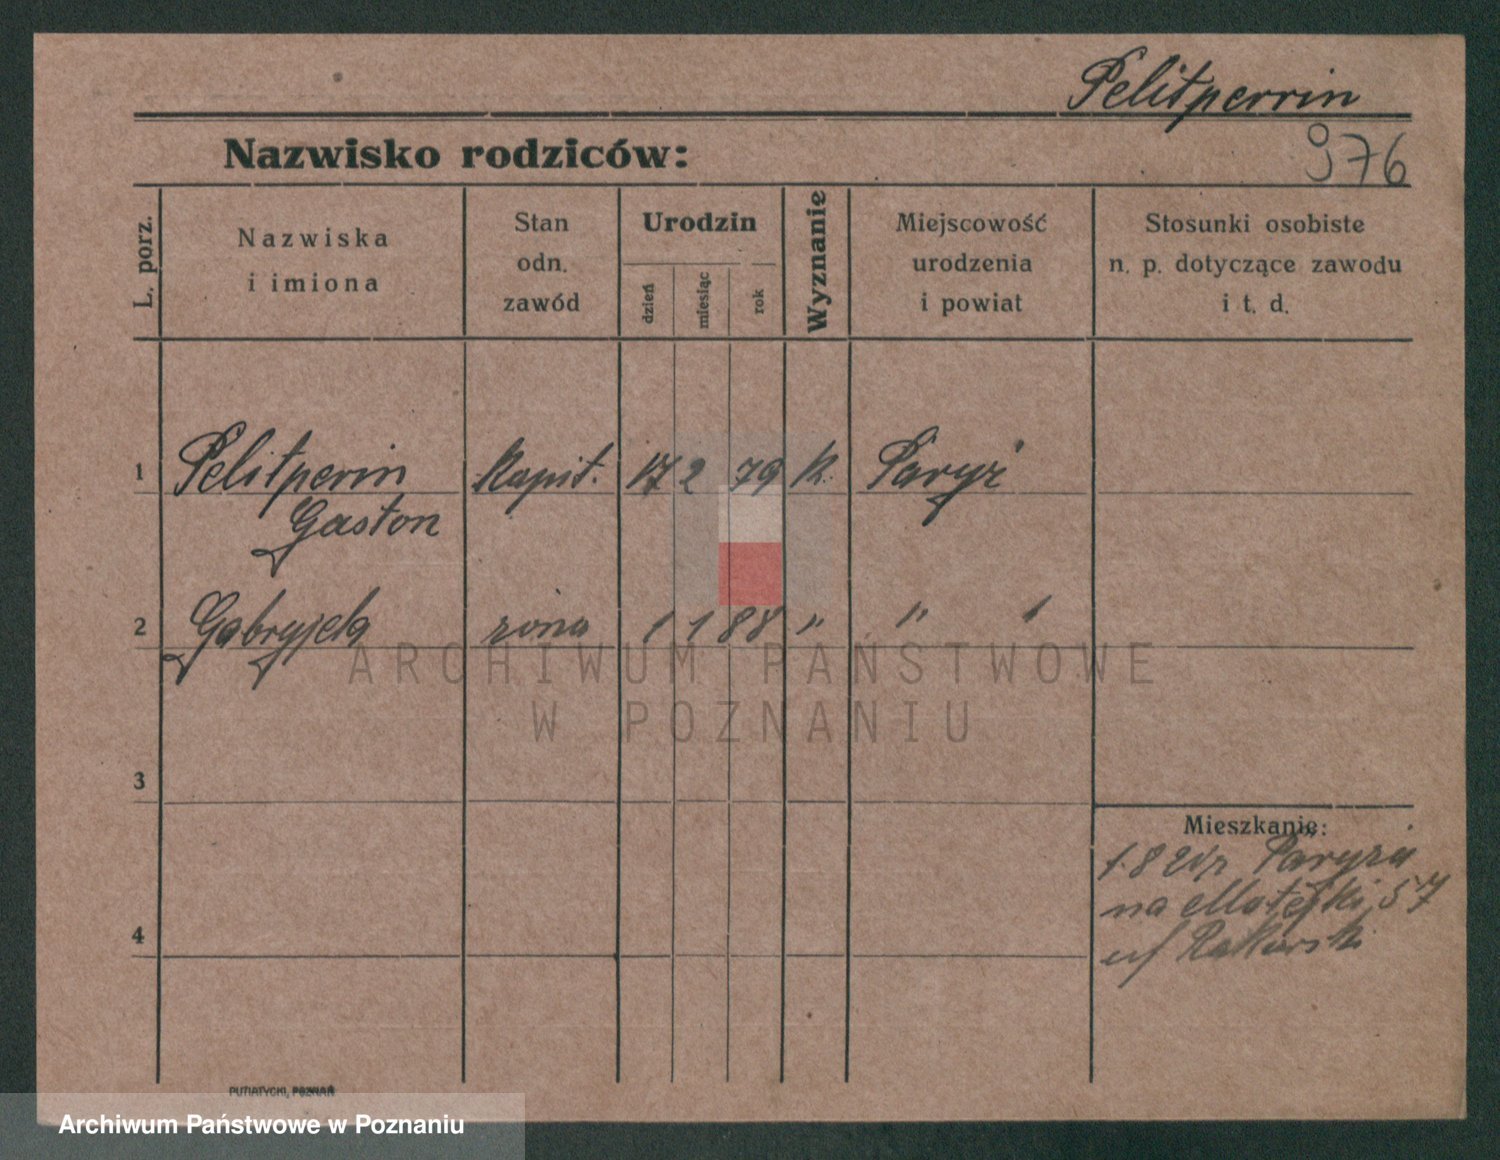 Pelitperrin
Nazwisko rodziców:
976
L. porz.
Nazwiska
i imiona
Stan
odn.
zawód
Urodzin
dzień
miesiąc
rok
Wyznanie
Miejscowość
urodzenia
i powiat
Stosunki osobiste
n. p. dotyczące zawodu
i t. d.
1 Pelitperin Kapit. 17 2 79 K. Paryż
Gaston
2 Gabryjela żona 1 1 88 " "
ARCHIWUM PAŃSTWOWE
W POZNANIU
3
Mieszkanie:
1.8 21 z Paryża
na Matejki 57
4
PUTIATYCKI, POZNAŃ
Archiwum Państwowe w Poznaniu